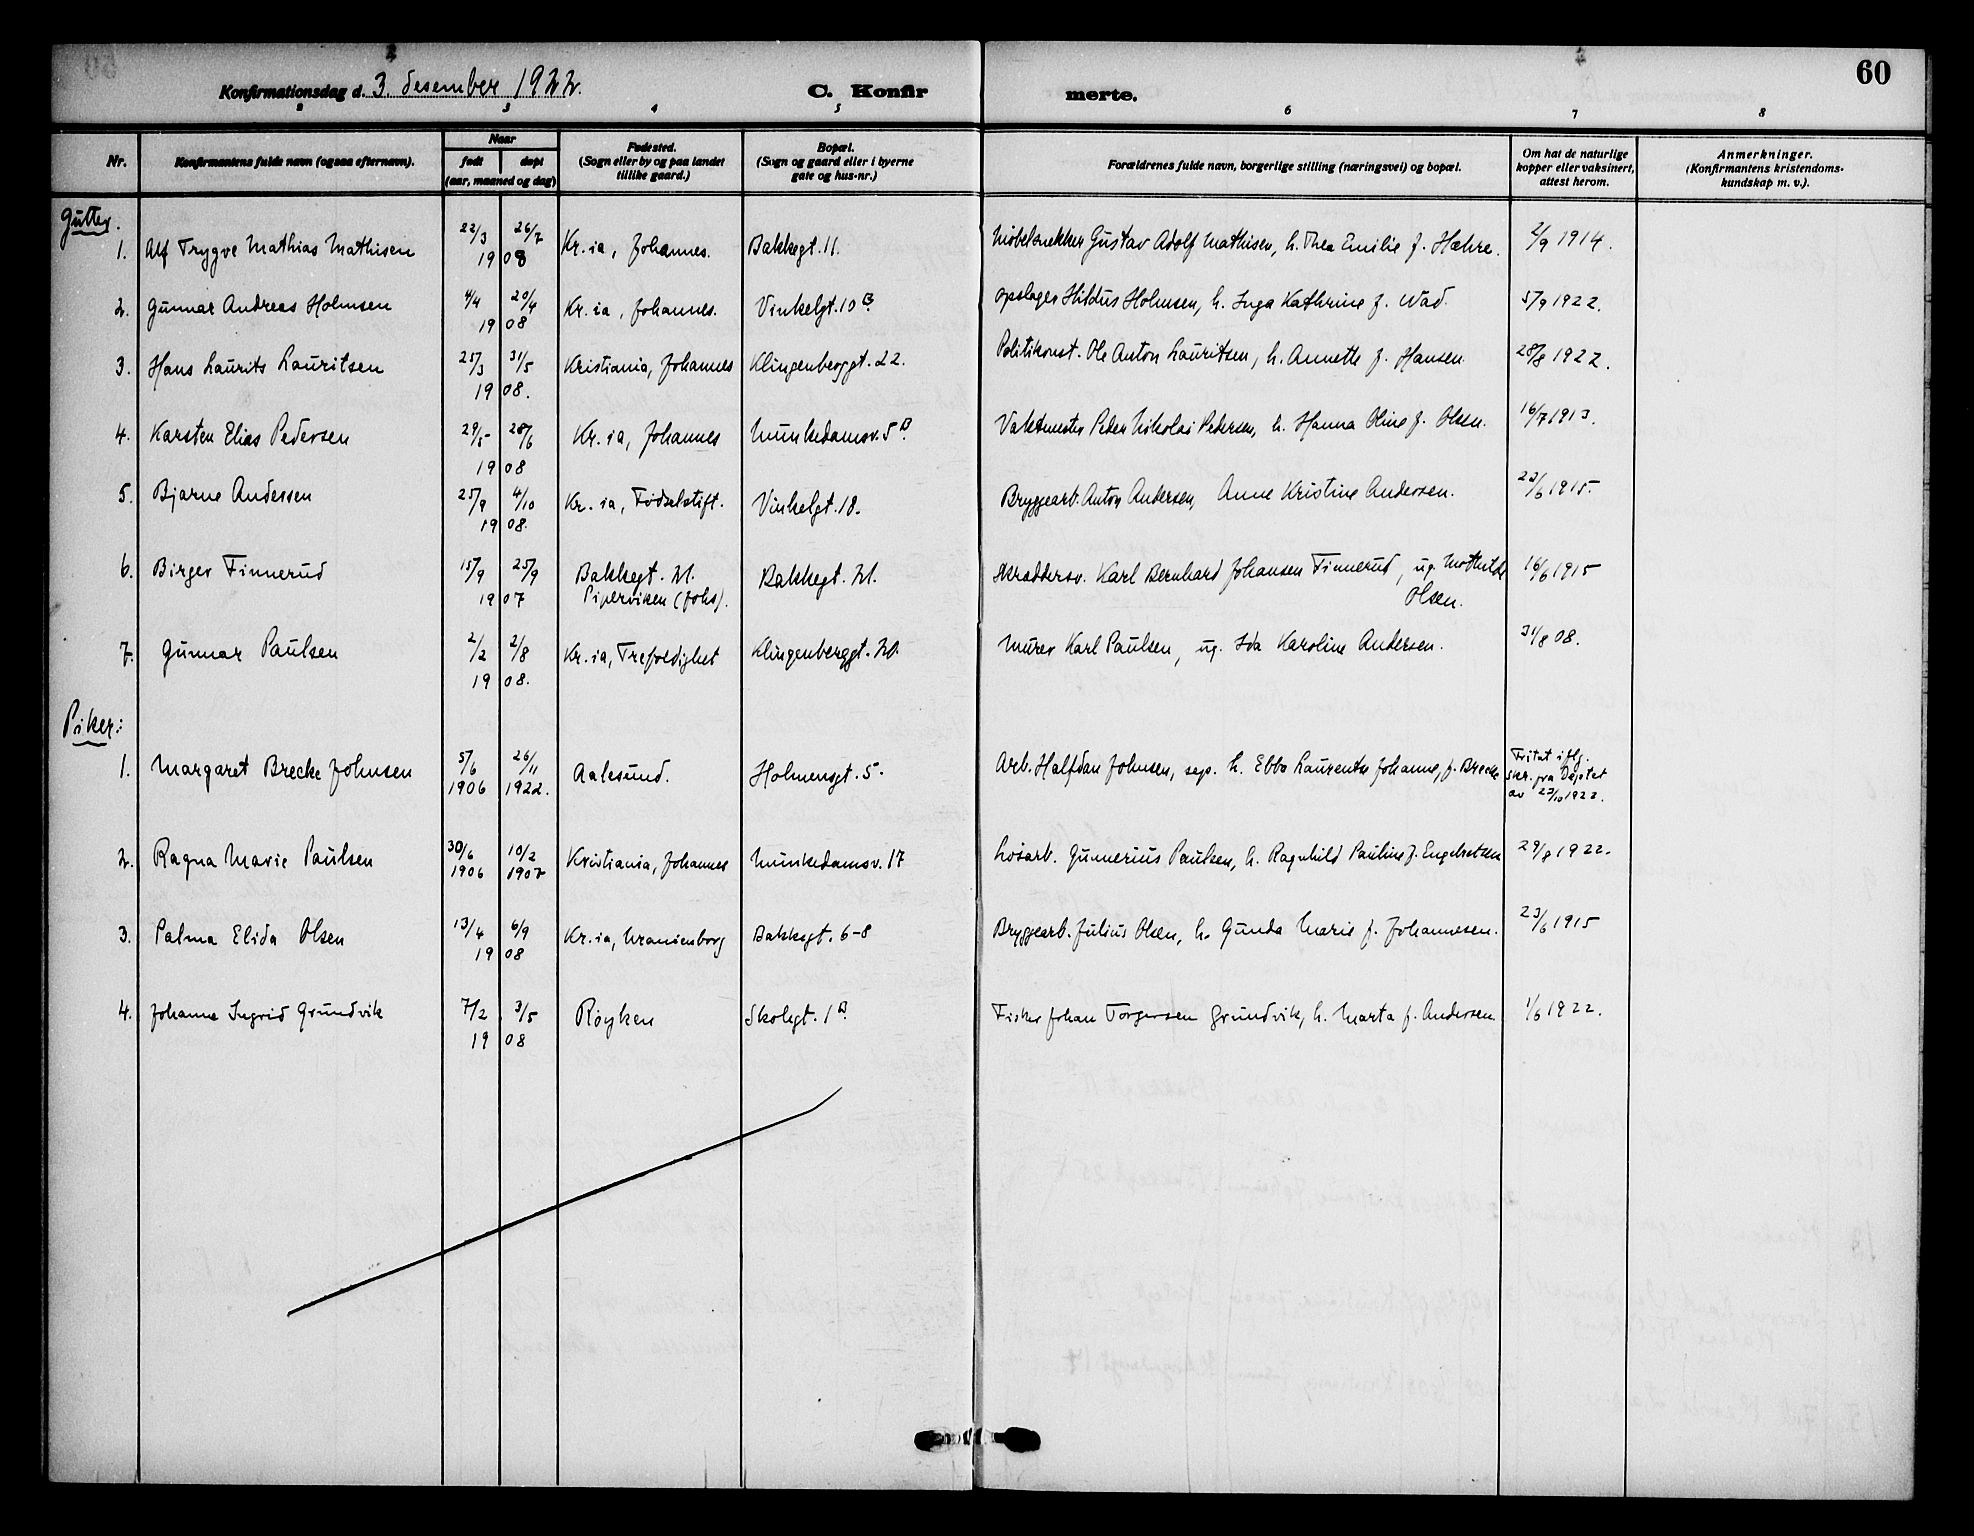 Konfirmationsdag d. 3. desember 1922. C. Konfirmerte. 60
2 3 4 5 6 7 8
Nr. Konfirmantens fulde navn (ogsaa efternavn). Naar født døpt (aar, maaned og dag) Fødested. (Sogn eller by og paa landet tillike gaard.) Bopæl. (Sogn og gaard eller i byerne gate og hus-nr.) Forældrenes fulde navn, borgerlige stilling (næringsvei) og bopæl. Om hat de naturlige kopper eller vaksinert, attest herom. Anmerkninger. (Konfirmantens kristendoms-kundskap m. v.).
Gutter.
1. Alf Trygve Mathias Mathisen 22/3 26/7 1908 Kr.ia, Johannes. Bakkegt. 11. Møbelsnekker Gustav Adolf Mathisen, h. Thea Emilie f. Hæhre. 2/9 1914.
2. Gunnar Andreas Holmsen 4/4 20/4 1908 Kr.ia, Johannes. Vinkelgt. 10 B. Opslager Hildus Holmsen, h. Inga Kathrine f. Wad. 5/9 1922.
3. Hans Laurits Lauritsen 25/3 31/5 1908. Kristiania, Johannes Klingenberggt. 22. Politikonst. Ole Anton Lauritsen, h. Annette f. Hansen. 28/8 1922.
4. Karsten Elias Pedersen 29/5 28/6 1908 Kr.ia, Johannes Munkedamsv. 5 B. Vaktmester Peder Nikolai Pedersen, h. Hanna Oline f. Olsen. 16/7 1913.
5. Bjarne Andersen 25/9 4/10 1908. Kr.ia, Fødselstift. Vinkelgt. 18. Bryggearb. Anton Andersen, Anne Kristine Andersen. 23/6 1915.
6. Birger Finnerud 15/9 25/9 1907 Bakkegt. 21. Piperviken (Johs). Bakkegt. 21. Skreddersv. Karl Bernhard Johansen Finnerud, ug. Mathilde Olsen. 16/6 1915
7. Gunnar Paulsen 2/2 2/8 1908. Kr.ia, Trefoldighet Klingenberggt. 20. Murer Karl Paulsen, ug. Ida Karoline Andersen. 31/8 08.
Piker:
1. Margaret Brecke Johnsen 5/6 1906 26/11 1922. Aalesund. Holmensgt. 5. Arb. Halfdan Johnsen, sep. h. Ebba Laurentse Johanne, f. Brecke Fritat iflg. skr. fra Dep.tet av 23/10 1922.
2. Ragna Marie Paulsen 30/6 1906 10/2 1907 Kristiania, Johannes Munkedamsv. 17 Løsarb. Gunnerius Paulsen, h. Ragnhild Pauline f. Engebretsen 29/8 1922.
3. Palma Elida Olsen 13/4 6/9 1908 Kr.ia, Uranienborg Bakkegt. 6-8 Bryggearb. Julius Olsen, h. Gunda Marie f. Johannesen. 23/6 1915
4. Johanne Ingrid Grundvik 7/2 3/5 1908 Røyken Skolegt. 1 B. Fisker Johan Torgersen Grundvik, h. Marta f. Andersen. 1/6 1922.